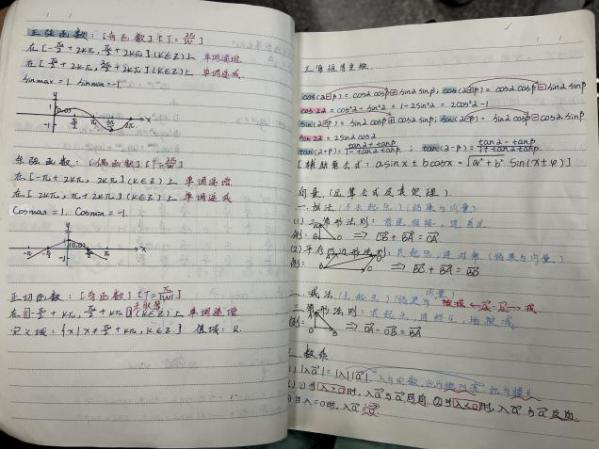 正弦函数：[奇函数] [T=2π/|ω|]
在[-π/2+2kπ, π/2+2kπ](k∈Z)上 单调递增
在[π/2+2kπ, 3π/2+2kπ](k∈Z)上 单调递减
sinmax=1 sinmin=-1
余弦函数：[偶函数] [T=2π/|ω|]
在[-π+2kπ, 2kπ](k∈Z)上 单调递增
在[2kπ, π+2kπ](k∈Z)上 单调递减
Cosmax=1, Cosmin=-1
正切函数：[奇函数] [T=π/|ω|]
在(-π/2+kπ, π/2+kπ)(k∈Z)上 单调递增
定义域：{x|x≠π/2+kπ, k∈Z} 值域：R
三角恒等变换
cos(α+β)=cosα cosβ-sinα sinβ; cos(α-β)=cosα cosβ+sinα sinβ
cos2α=cos²α-sin²α=1-2sin²α=2cos²α-1
sin(α+β)=sinα cosβ+cosα sinβ; sin(α-β)=sinα cosβ-cosα sinβ
sin2α=2sinα cosα
tan(α+β)=tanα+tanβ/1-tanα tanβ; tan(α-β)=tanα-tanβ/1+tanα tanβ
[辅助角公式：asinx±bcosx=√a²+b² sin(x±φ)]
向量(运算公式及其定理)
一.加法
(1)三角形法则：首尾相接，连首尾
例： ⇒ OB+BA=OA
(2)平行四边形法则：共起点，连对角
例： ⇒ BC+BA=BD
二.减法(共起点)
三角形法则：共起点，连终点，指被减
例： ⇒ OA-OB=BA
三.数乘
(1)|λa|=|λ||a|
(2)①当λ>0时，λa与a同向 ②当λ<0时，λa与a反向
③当λ=0时，λa=0